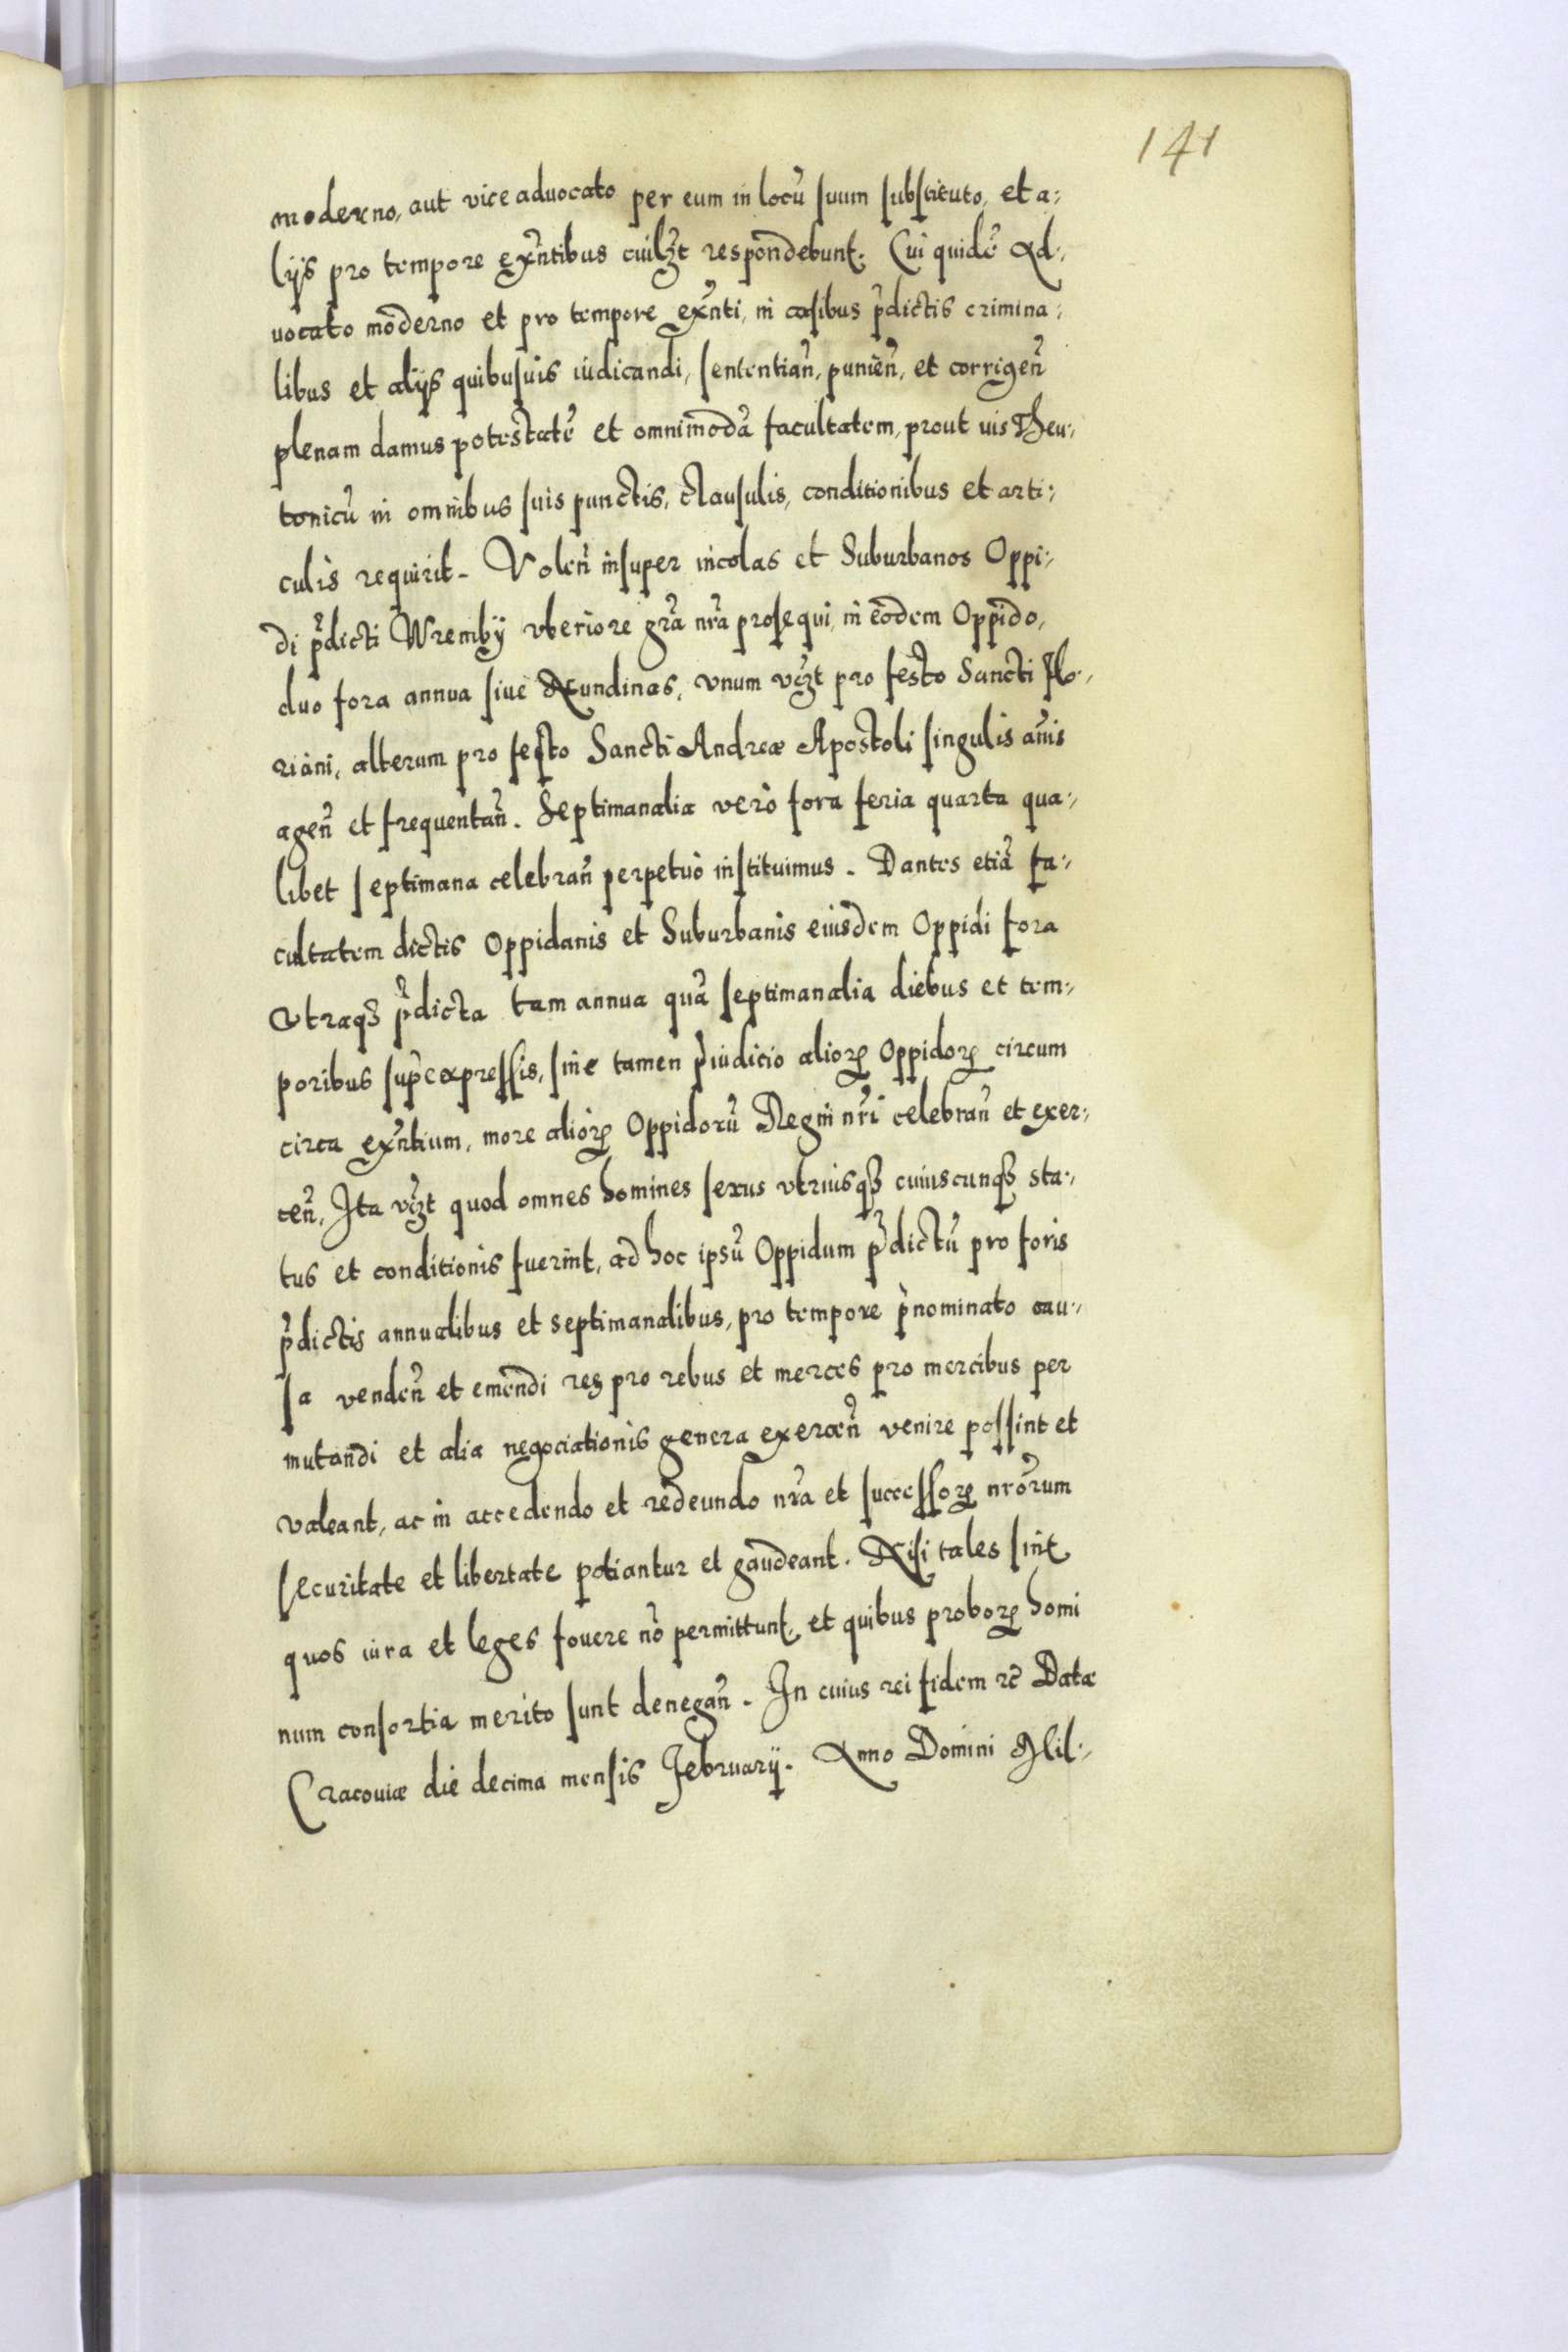 141
moderno, aut vice aduocato per eum in locū suum substituto, et a-
lijs pro tempore exñtibus cuilꝫt respondebunt. Cui quidē Ad-
uocato moderno et pro tempore exñti, in casibus p̃dictis crimina-
libus et alijs quibusuis iudicandi, sententiañ, punieñ, et corrigeñ
plenam damus potestatē et omnimodā facultatem, prout ius Theu-
tonicū in omnibus suis punctis, clausulis, conditionibus et arti-
culis requirit. Voleñ insuper incolas et Suburbanos Oppi-
di p̃dicti Wremby vberiore gr̃a nr̃a prosequi, in eodem Oppido,
duo fora annua siue Nundinas, vnum vꝫt pro festo Sancti Flo-
riani, alterum pro festo Sancti Andreæ Apostoli singulis annis
ageñ et frequentañ. Septimanalia verò fora feria quarta qua-
libet septimana celebrañ perpetuò instituimus. Dantes etiā fa-
cultatem dictis Oppidanis et Suburbanis eiusdem Oppidi fora
vtraqꝫ p̃dicta tam annua quā septimanalia diebus et tem-
poribus suprexpressis, sine tamen p̃iudicio aliorꝝ Oppidorꝝ circum
circa exñtium, more aliorꝝ Oppidorū Regni nr̃i celebrañ et exer-
ceñ, Ita vꝫt quod omnes homines sexus vtriusqꝫ cuiuscunqꝫ sta-
tus et conditionis fuerint, ad hoc ipsū Oppidum p̃dictū pro foris
p̃dictis annualibus et septimanalibus, pro tempore p̃nominato cau-
sa vendeñ et emendi res pro rebus et merces pro mercibus per
mutandi et alia negociationis genera exerceñ venire possint et
valeant, ac in accedendo et redeundo nr̃a et successorꝝ nrōrum
securitate et libertate potiantur et gaudeant. Nisi tales sint
quos iura et leges fouere nō permittunt, et quibus proborꝝ homi
num consortia merito sunt denegañ. In cuius rei fidem rc̃ Datæ
Cracouiæ die decima mensis Februarij. Anno Domini Mil-